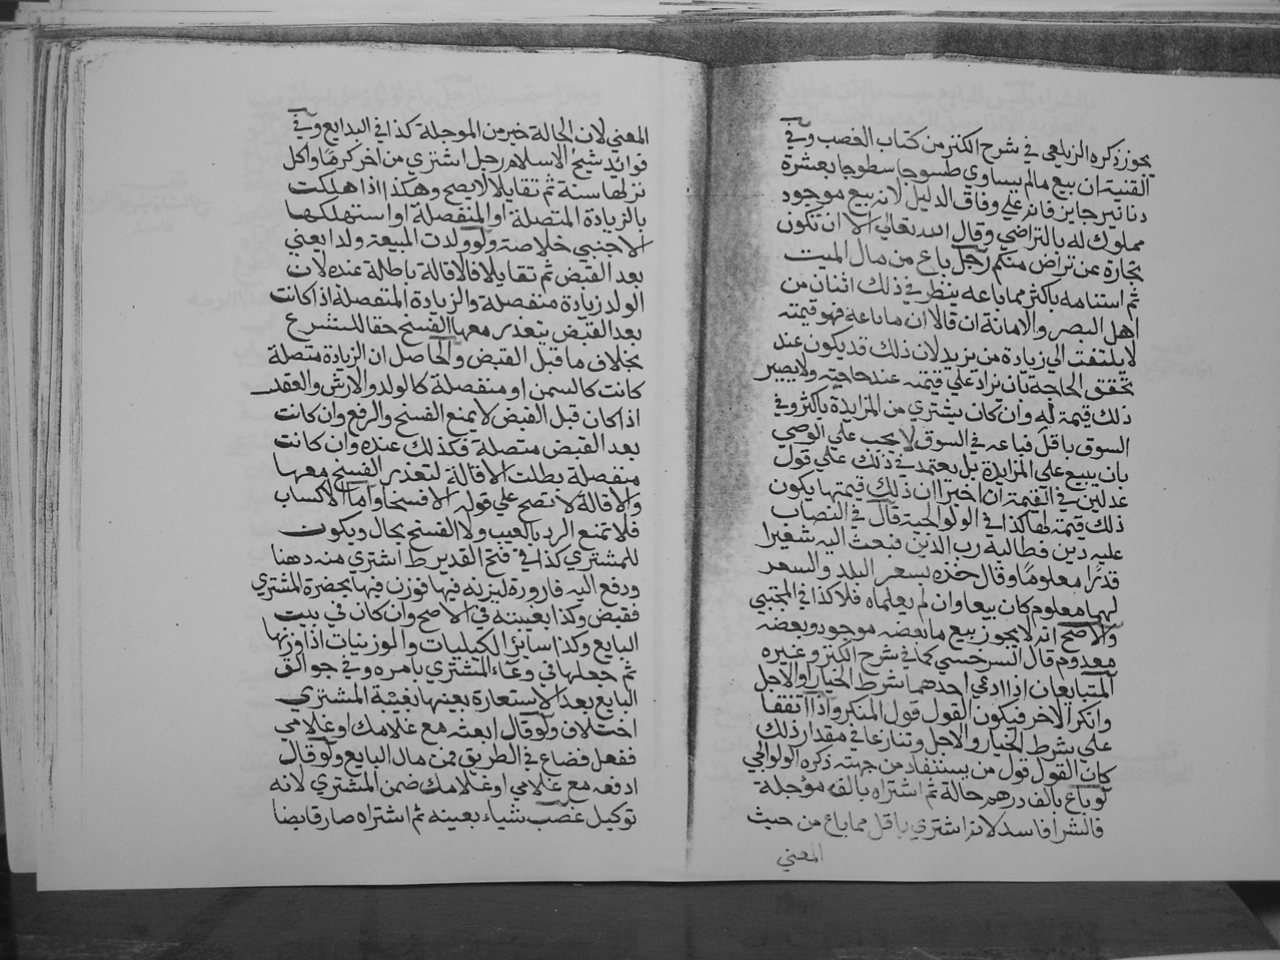 يجوز ذكره الزيلعي في شرح الكنز من كتاب الغصب وفي
القنية ان بيع مالم يساوي طسوجا سطوجا بعشرة
دنانير جايز فانه علي وفاق الدليل لانه بيع موجود
مملوك له بالتراضي وقال الله تعالي الا ان تكون
تجارة عن تراض منكم رجل باع من مال الميت
ثم استنامه باكثر مما باعه ينظر في ذلك اثنان من
اهل البصر والامانة ان قالا ان ما باعه فهو قيمته
لا يلتفت الي زيادة من يزيد لان ذلك قد يكون عند
تحقق الحاجة بان يزاد علي قيمته عند حاجته ولا يصير
ذلك قيمة له وان كان يشتري من المزايدة باكثر وفي
السوق باقل فباعه في السوق لا يجب علي الوصي
بان يبيع علي المزايدة بل يعتمد في ذلك علي قول
عدلين في القيمة ان اخبرا ان ذلك قيمتها يكون
ذلك قيمة لها كذا في الولوالجية قال في النصاب
عليه دين فطالبه رب الدين فبعث اليه شعيرا
قدرا معلوما وقال خذه بسعر البلد والسعر
لهما معلوم كان بيعا وان لم يعلماه فلا كذا في المجتبي
والاصح انه لا يجوز بيع ما بعضه موجود وبعضه
معدوم قال السرخسي كما في شرح الكنز وغيره
المتبايعان اذا ادعي احدهما شرط الخيار او الاجل
وانكر الاخر فيكون القول قول المنكر واذا اتفقا
علي شرط الخيار والاجل وتنازعا في مقدار ذلك
كان القول قول من يستفاد من جهته ذكره الولوالجي
لو باع بالف درهم حالة ثم اشتراه بالف مؤجلة
فالشرا فاسد لانه اشتري باقل مما باع من حيث
المعني
المعني لان الحالة خير من الموجلة كذا في البدايع وفي
فوايد شيخ الاسلام رجل اشتري من اخر كرما واكل
نزلها سنة ثم تقايلا لا يصح وهكذا اذا هلكت
بالزيادة المتصلة او المنفصلة او استهلكها
الاجنبي خلاصة ولو ولدت المبيعة ولدا يعني
بعد القبض ثم تقايلا فالاقالة باطلة عنده لان
الولد زيادة منفصلة والزيادة المنفصلة اذا كانت
بعد القبض يتعذر معها الفسخ حقا للشرع
بخلاف ما قبل القبض والحاصل ان الزيادة متصلة
كانت كالسمن او منفصلة كالولد والارش والعقد
اذا كان قبل القبض لا يمنع الفسخ والرفع وان كانت
بعد القبض متصلة فكذلك عنده وان كانت
منفصلة بطلت الاقالة لتعذر الفسخ معها
والاقالة لا تصح علي قوله الا فسخا واما الاكساب
فلا تمنع الرد بالعيب ولا الفسخ بحال ويكون
للمشتري كذا في فتح القدير ط اشتري منه دهنا
ودفع اليه قارورة ليزنه فيها فوزن فيها بحضرة المشتري
فقبض وكذا بغيبته في الاصح وان كان في بيت
البايع وكذا ساير الكيليات والموزنيات اذا وزنها
ثم جعلها في وعاء المشتري بامره وفي جوالق
البايع بعد الاستعارة بعينها بغيبة المشتري
اختلاف ولو قال ابعثه مع غلامك او غلامي
ففعل فضاع في الطريق فمن مال البايع ولو قال
ادفعه مع غلامي او غلامك ضمن المشتري لانه
توكيل غصب شياء بعينه ثم اشتراه صار قابضا